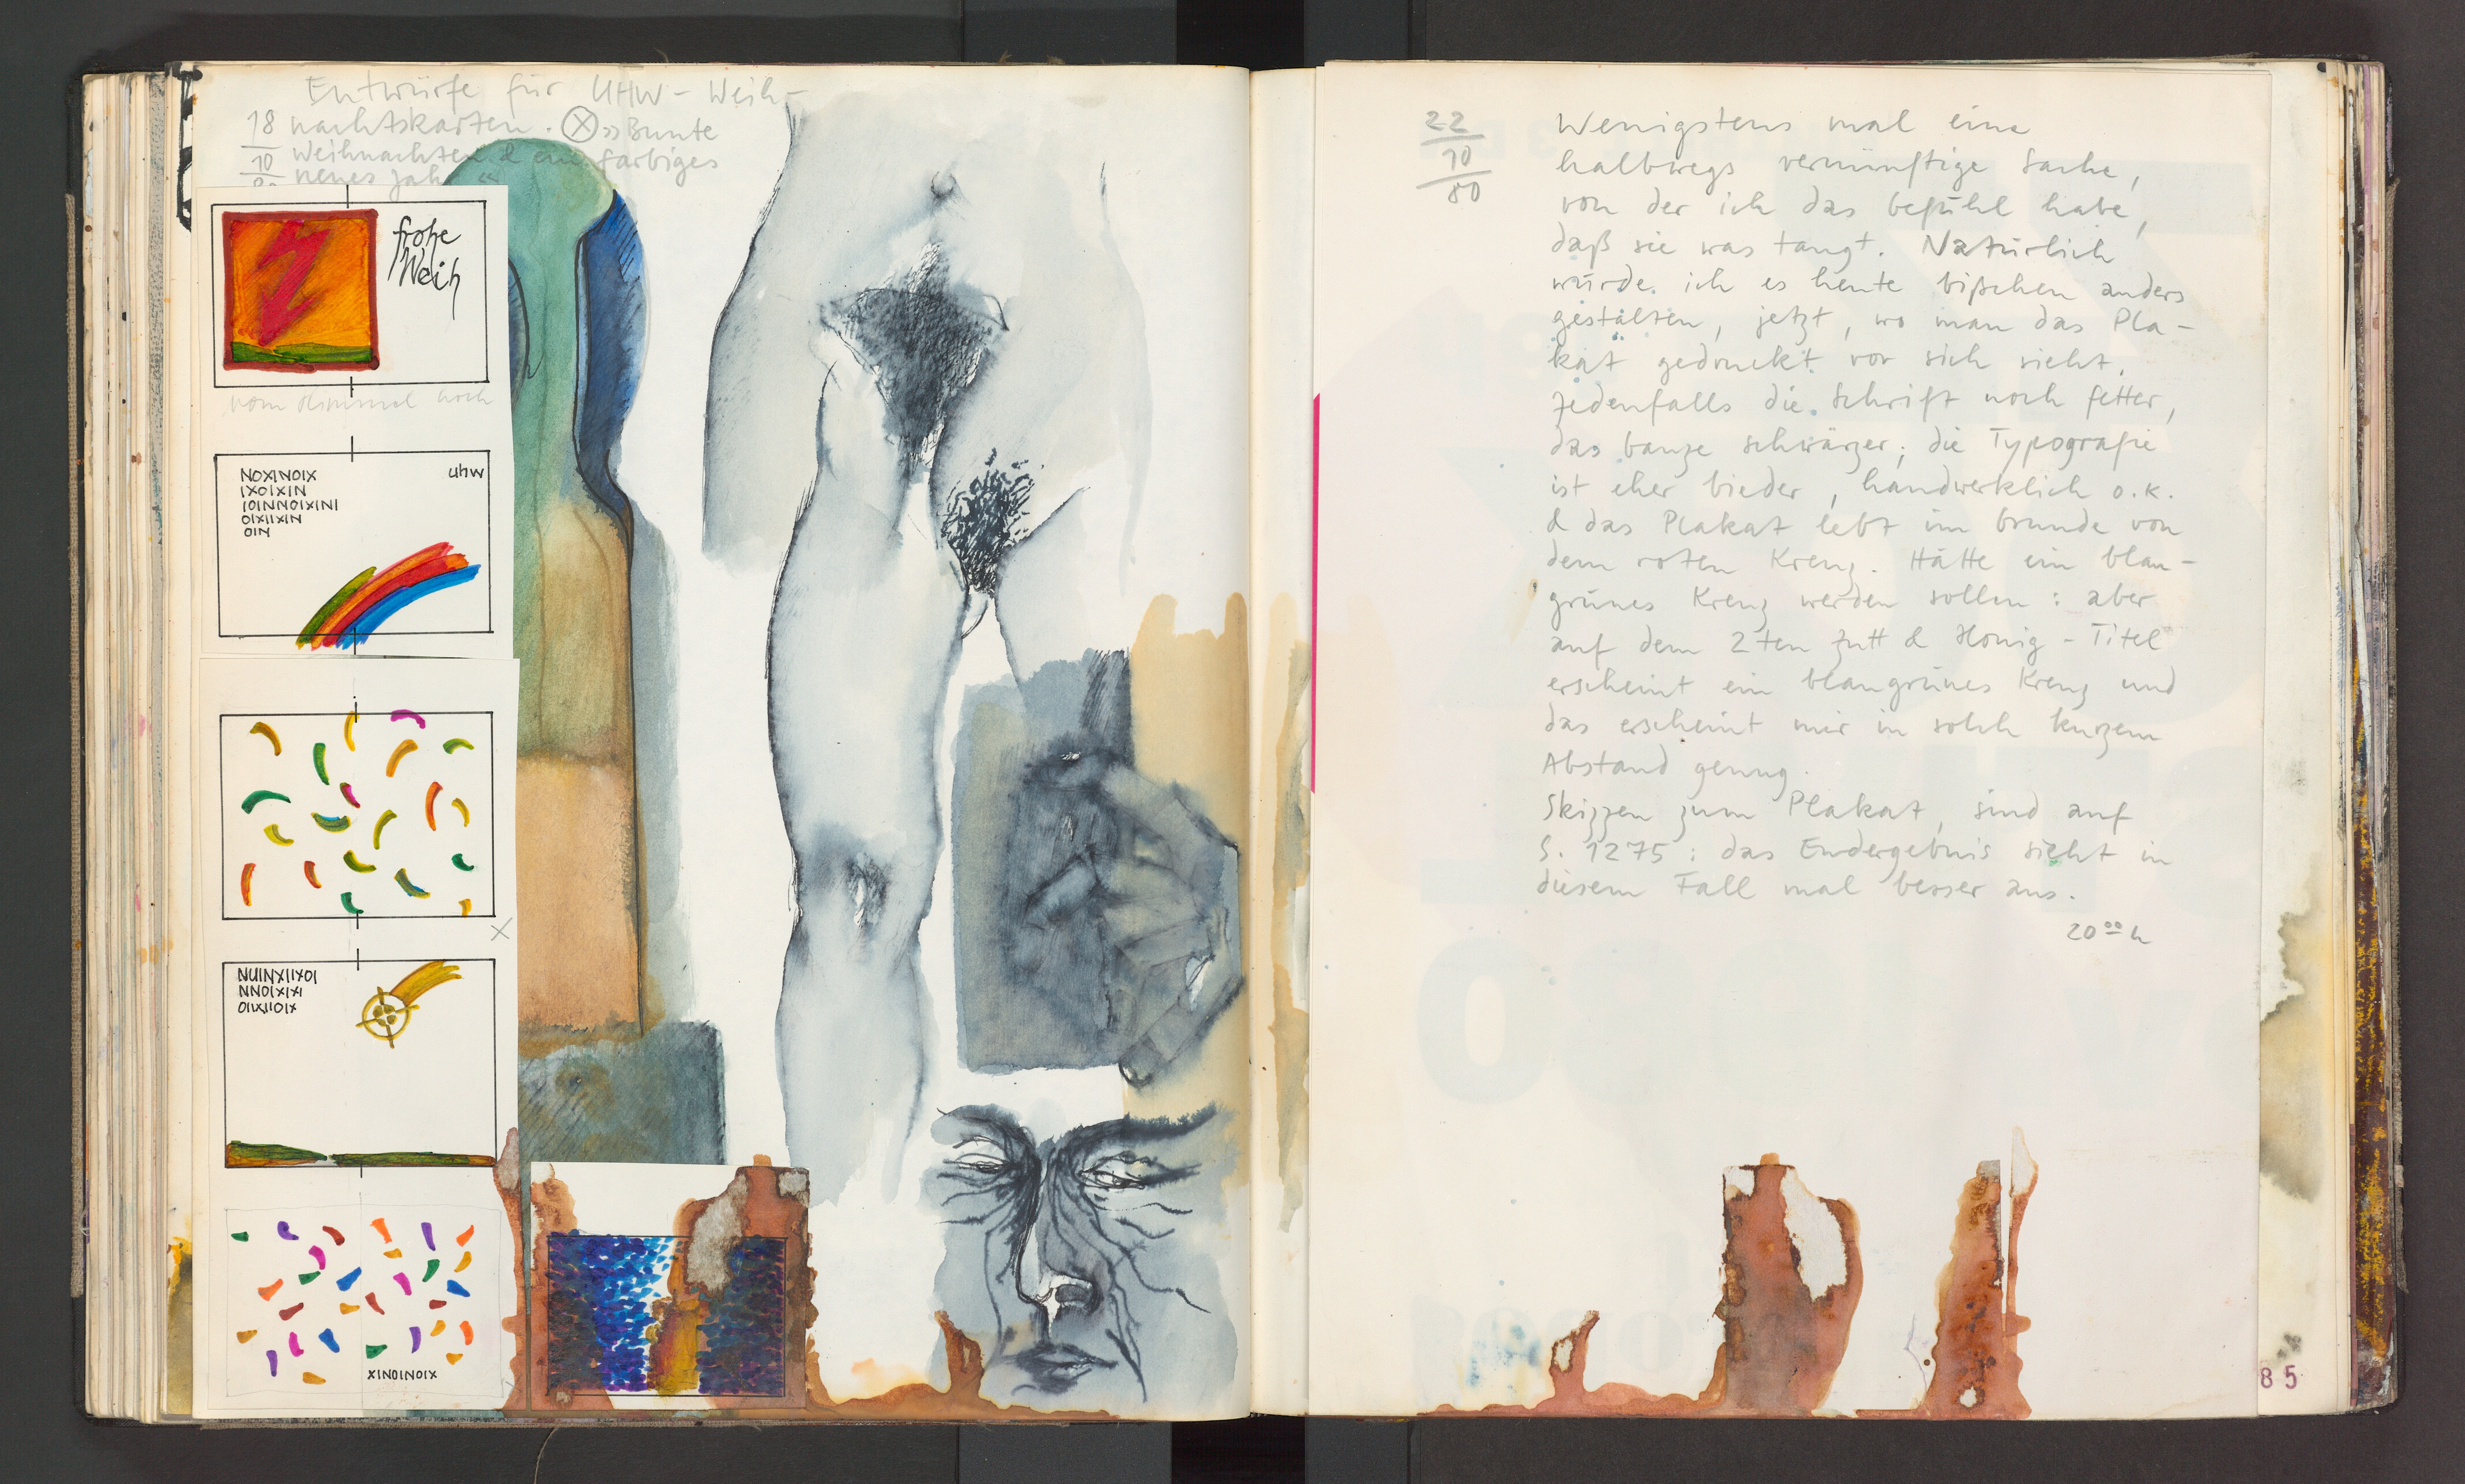 Entwürfe für UHW - Weih-
18 nachtskarten. ⊗ »Bunte
10 Weihnachten & ein farbiges
neues Jahr «
frohe
Weih
vom Himmel hoch
NOXINOIX
IXOIXIN
IOINNOIXINI
OIXIIXIN
OIN
uhw
X
NUINXIIXOI
NNOIXIXI
OIIXIIOIX
XINOINOIX
22
10
80
Wenigstens mal eine
halbwegs vernünftige Sache,
von der ich das Gefühl habe,
daß sie was taugt. Natürlich
würde ich es heute bißchen anders
gestalten, jetzt, wo man das Pla-
kat gedruckt vor sich sieht.
Jedenfalls die Schrift noch fetter,
das Ganze schwärzer; die Typografie
ist eher bieder, handwerklich o.k.
& das Plakat lebt im Grunde von
dem roten Kreuz. Hätte ein blau-
grünes Kreuz werden sollen: aber
auf dem 2ten Zutt & Honig - Titel
erscheint ein blaugrünes Kreuz und
das erscheint mir in solch kurzem
Abstand genug.
Skizzen zum Plakat, sind auf
S. 1275: das Endergebnis sieht in
diesem Fall mal besser aus.
20⁰⁰ h
85